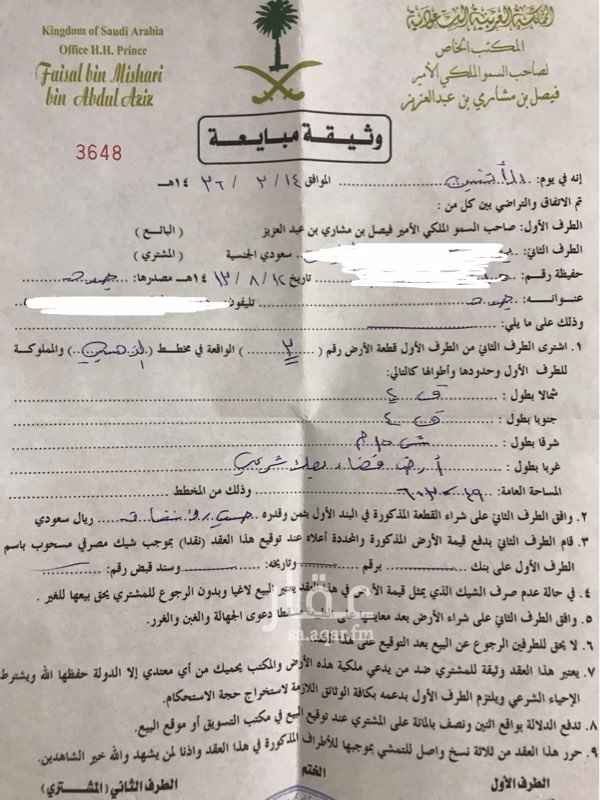 Kingdom of Saudi Arabia
Office H.H. Prince
Faisal bin Mishari
bin Abdul Aziz
المملكة العربية السعودية
المكتب الخاص
لصاحب السمو الملكي الأمير
فيصل بن مشاري بن عبدالعزيز
وثيقة مبايعة
3648
إنه في يوم: الموافق ١٤ / ٢ / ٢٦ ١٤هـ
تم الاتفاق والتراضي بين كل من :
الطرف الأول: صاحب السمو الملكي الأمير فيصل بن مشاري بن عبد العزيز ( البائع )
الطرف الثاني: سعودي الجنسية ( المشتري )
حفيظة رقم: تاريخ ١٢ / ٨ / ١٣ ١٤هـ مصدرها: جده
عنوانه: جده تليفون
وذلك على ما يلي:
١. اشترى الطرف الثاني من الطرف الأول قطعة الأرض رقم ( ٢ ) الواقعة في مخطط ( ) والمملوكة
للطرف الأول وحدودها وأطوالها كالتالي:
شمالا بطول : ق ٤
جنوبا بطول : ق ٤
شرقا بطول : ش ١٥ م
غربا بطول : أرض فضاء
المساحة العامة: وذلك من المخطط
٢. وافق الطرف الثاني على شراء القطعة المذكورة في البند الأول بثمن وقدره ريال سعودي
٣. قام الطرف الثاني بدفع قيمة الأرض المذكورة والمحددة أعلاه عند توقيع هذا العقد (نقدا) بموجب شيك مصرفي مسحوب باسم
الطرف الأول على بنك برقم وتاريخه: وسند قبض رقم:
٤. في حالة عدم صرف الشيك الذي يمثل قيمة الأرض في هذا العقد يعتبر البيع لاغيا وبدون الرجوع للمشتري يحق بيعها للغير .
٥. وافق الطرف الثاني على شراء الأرض بعد دعوى الجهالة والغبن والغرر.
٦. لا يحق للطرفين الرجوع عن البيع بعد التوقيع على هذا
٧. يعتبر هذا العقد وثيقة للمشتري ضد من يدعي ملكية هذه الأرض والمكتب يحميك من أي معتدي إلا الدولة حفظها الله ويشترط
الإحياء الشرعي ويلتزم الطرف الأول بدعمه بكافة الوثائق اللازمة لاستخراج حجة الاستحكام.
٨. تدفع الدلالة بواقع اثنين ونصف بالمائة على المشتري عند توقيع البيع في مكتب التسويق أو موقع البيع.
٩. حرر هذا العقد من ثلاثة نسخ واصل للتمشي بموجبها للأطراف المذكورة في هذا العقد واذنا لمن يشهد والله خير الشاهدين.
الطرف الأول الختم الطرف الثاني ( المشتري )
عقار
sa.aqar.fm